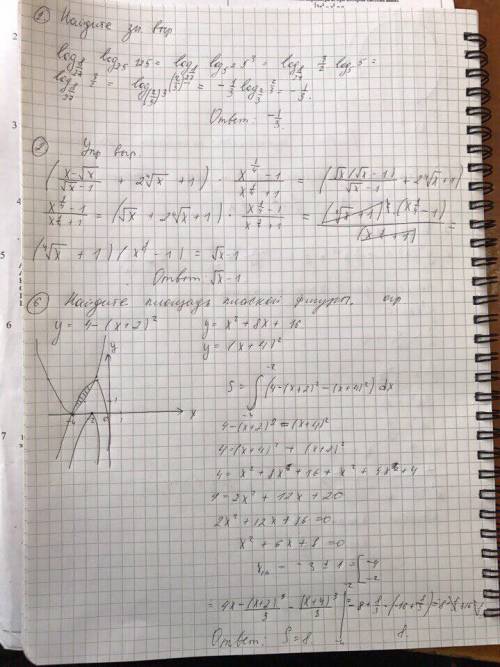 ① Найдите зн выр
log_{8/27} log_{25} 125 = log_{8/27} log_{5^2} 5^3 = log_{8/27} 3/2 log_5 5 =
log_{8/27} 3/2 = log_{(2/3)^3} (2/3)^{-1} = -1/3 log_{2/3} 2/3 = -1/3.
Ответ: -1/3.
Упр выр.
((x-√x)/(√x-1) + 2⁴√x + 1) · (x^{1/4} - 1)/(x^{1/4} + 1) = (√x(√x-1)/(√x-1) + 2⁴√x + 1)
(x^{1/4} - 1)/(x^{1/4} + 1) = (√x + 2⁴√x + 1) · (x^{1/4} - 1)/(x^{1/4} + 1) = (⁴√x + 1)² · (x^{1/4} - 1)/(x^{1/4} + 1) =
(⁴√x + 1)(x^{1/4} - 1) = √x - 1
Ответ √x - 1
⑥ Найдите площадь плоской фигуры. огр
y = 4-(x+2)² y = x² + 8x + 16
y = (x+4)²
y
S = ∫_{-4}^{-2} (4-(x+2)² - (x+4)²) dx
x
-4 -2 0 1
4-(x+2)² = (x+4)²
4=(x+4)² + (x+2)²
4= x² + 8x + 16 + x² + 4x + 4
4=2x² + 12x + 20
2x² + 12x + 16 = 0
x² + 6x + 8 = 0
x_{1,2} = -3 ± 1 = [-4 -2
= 4x - (x+2)³/3 - (x+4)³/3
Ответ: S = 8. 8.